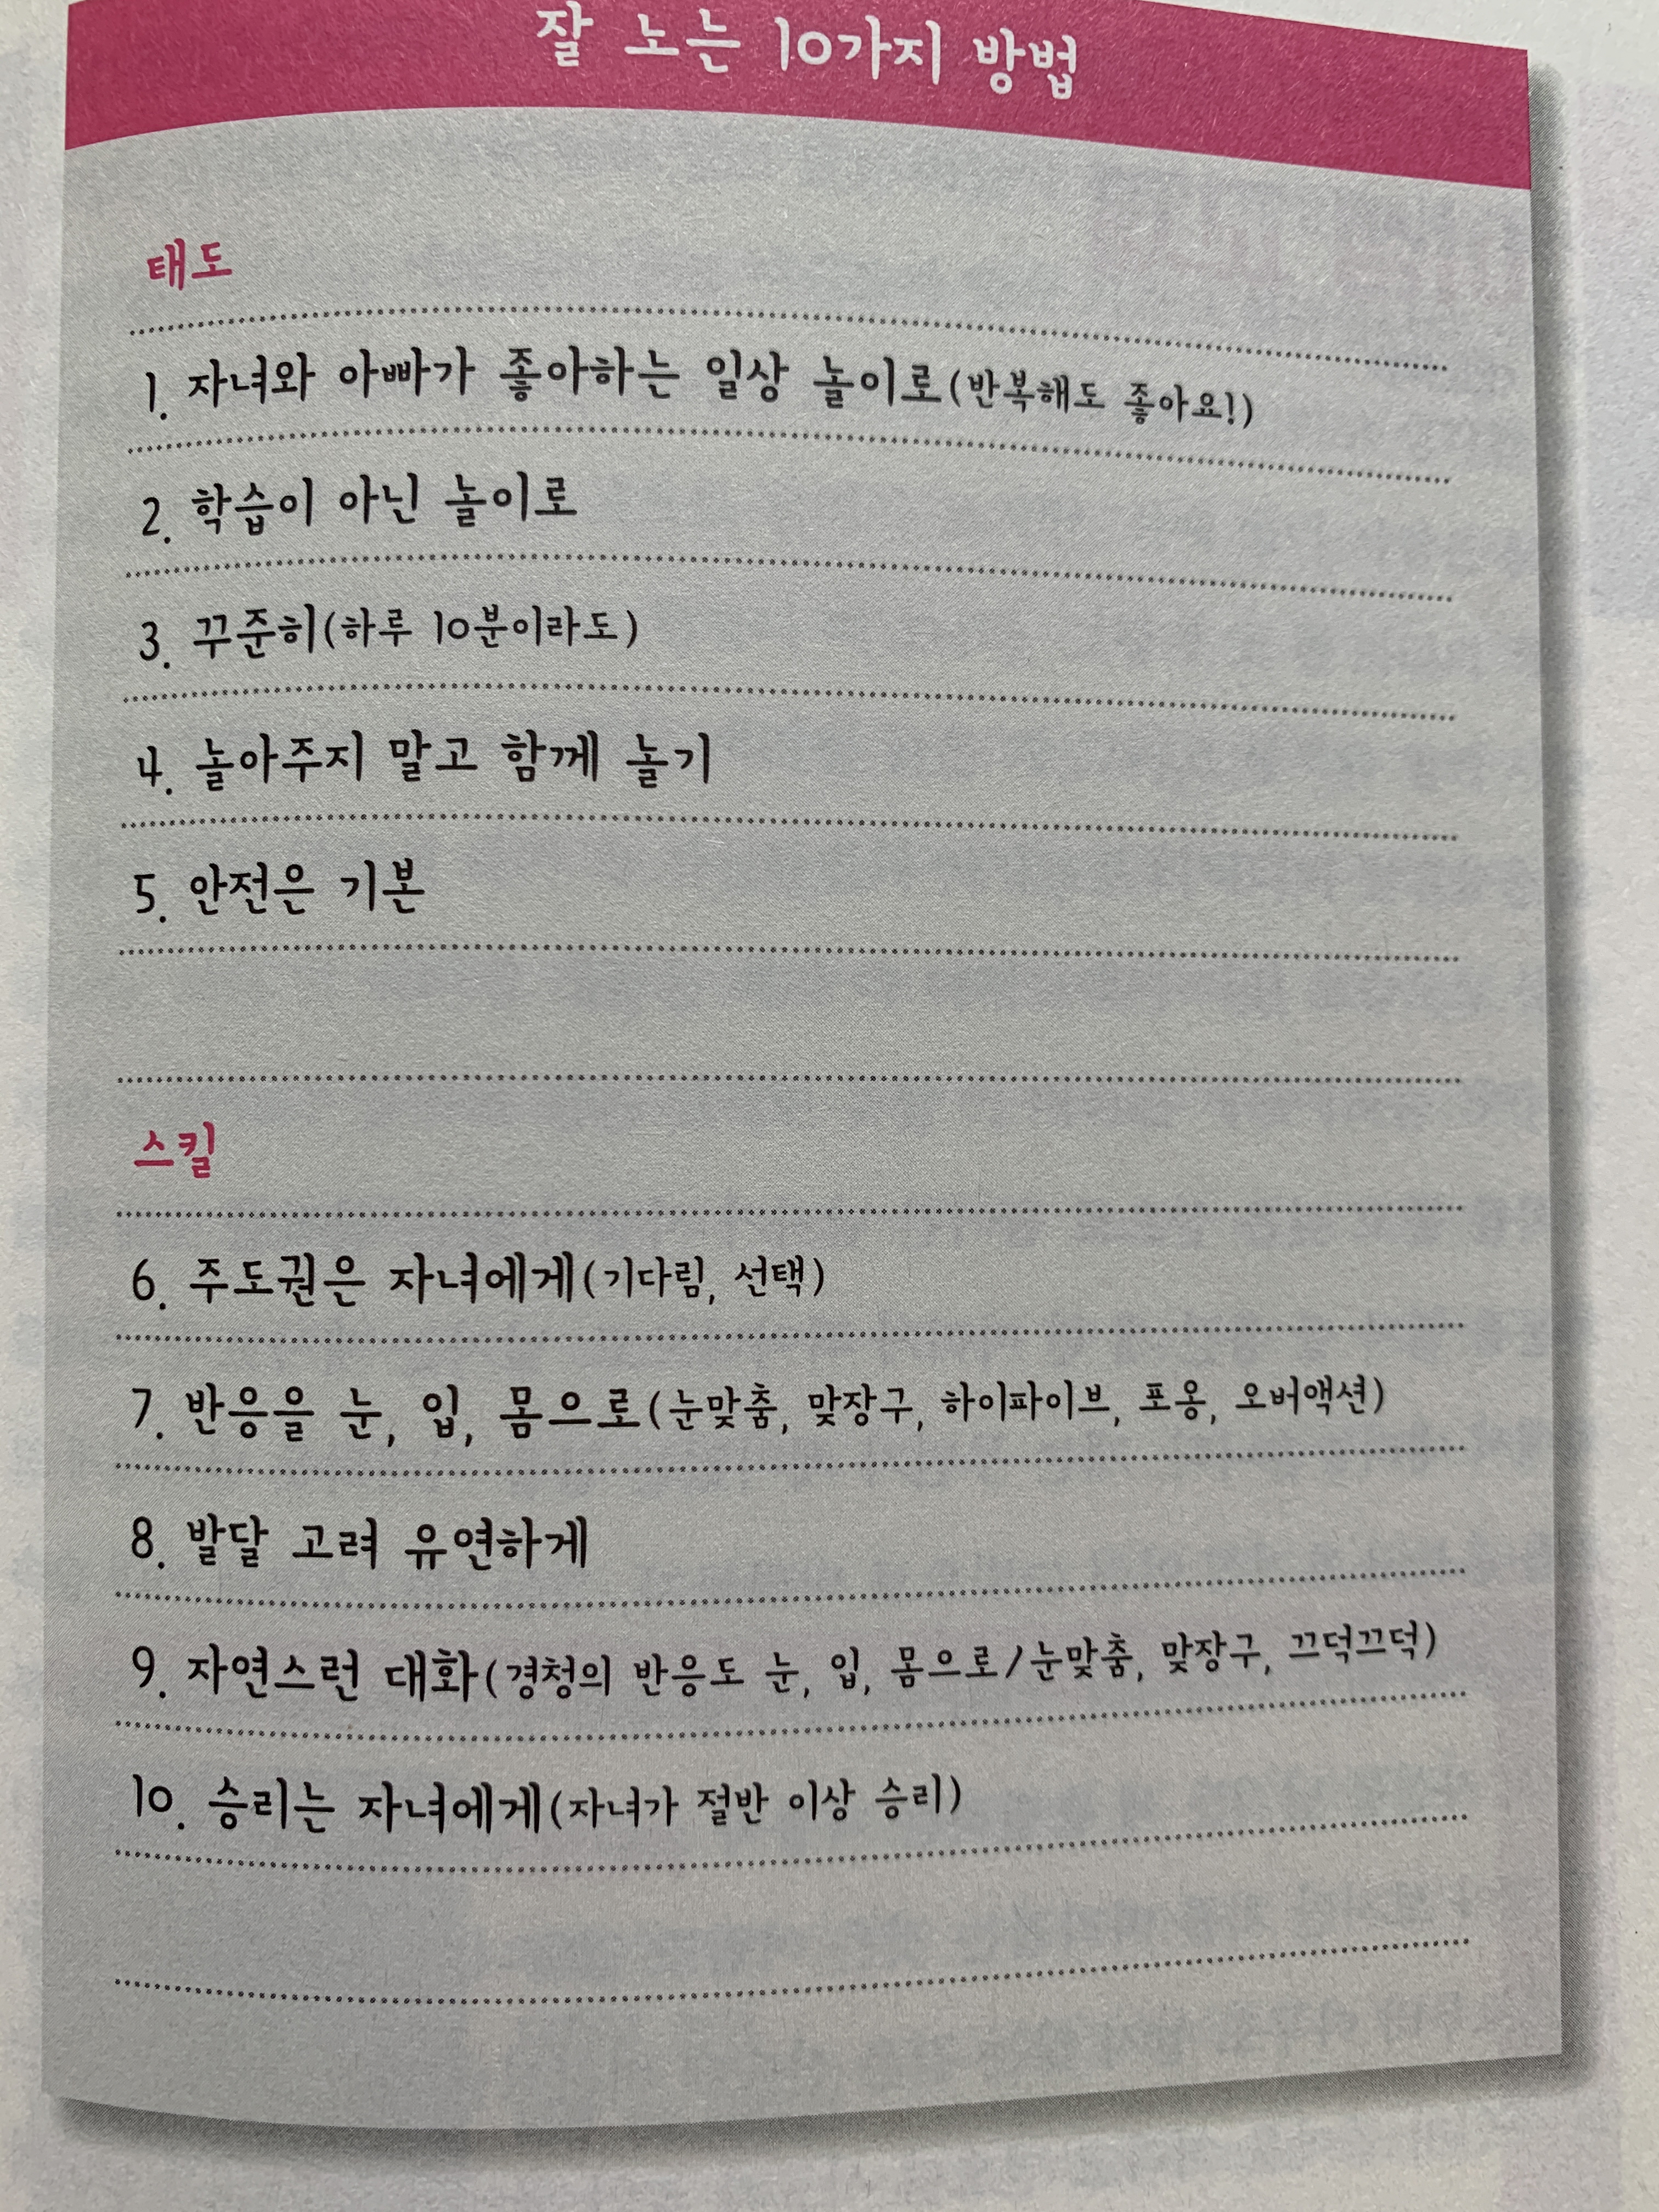 잘 노는 10가지 방법
태도
1. 자녀와 아빠가 좋아하는 일상 놀이로(반복해도 좋아요!)
2. 학습이 아닌 놀이로
3. 꾸준히(하루 10분이라도)
4. 놀아주지 말고 함께 놀기
5. 안전은 기본
스킬
6. 주도권은 자녀에게(기다림, 선택)
7. 반응을 눈, 입, 몸으로(눈맞춤, 맞장구, 하이파이브, 포옹, 오버액션)
8. 발달 고려 유연하게
9. 자연스런 대화(경청의 반응도 눈, 입, 몸으로/눈맞춤, 맞장구, 끄덕끄덕)
10. 승리는 자녀에게(자녀가 절반 이상 승리)